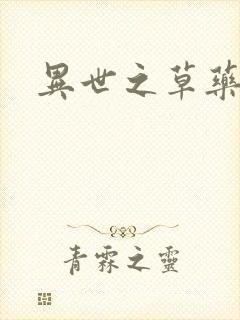 異世之草藥
青霖之靈